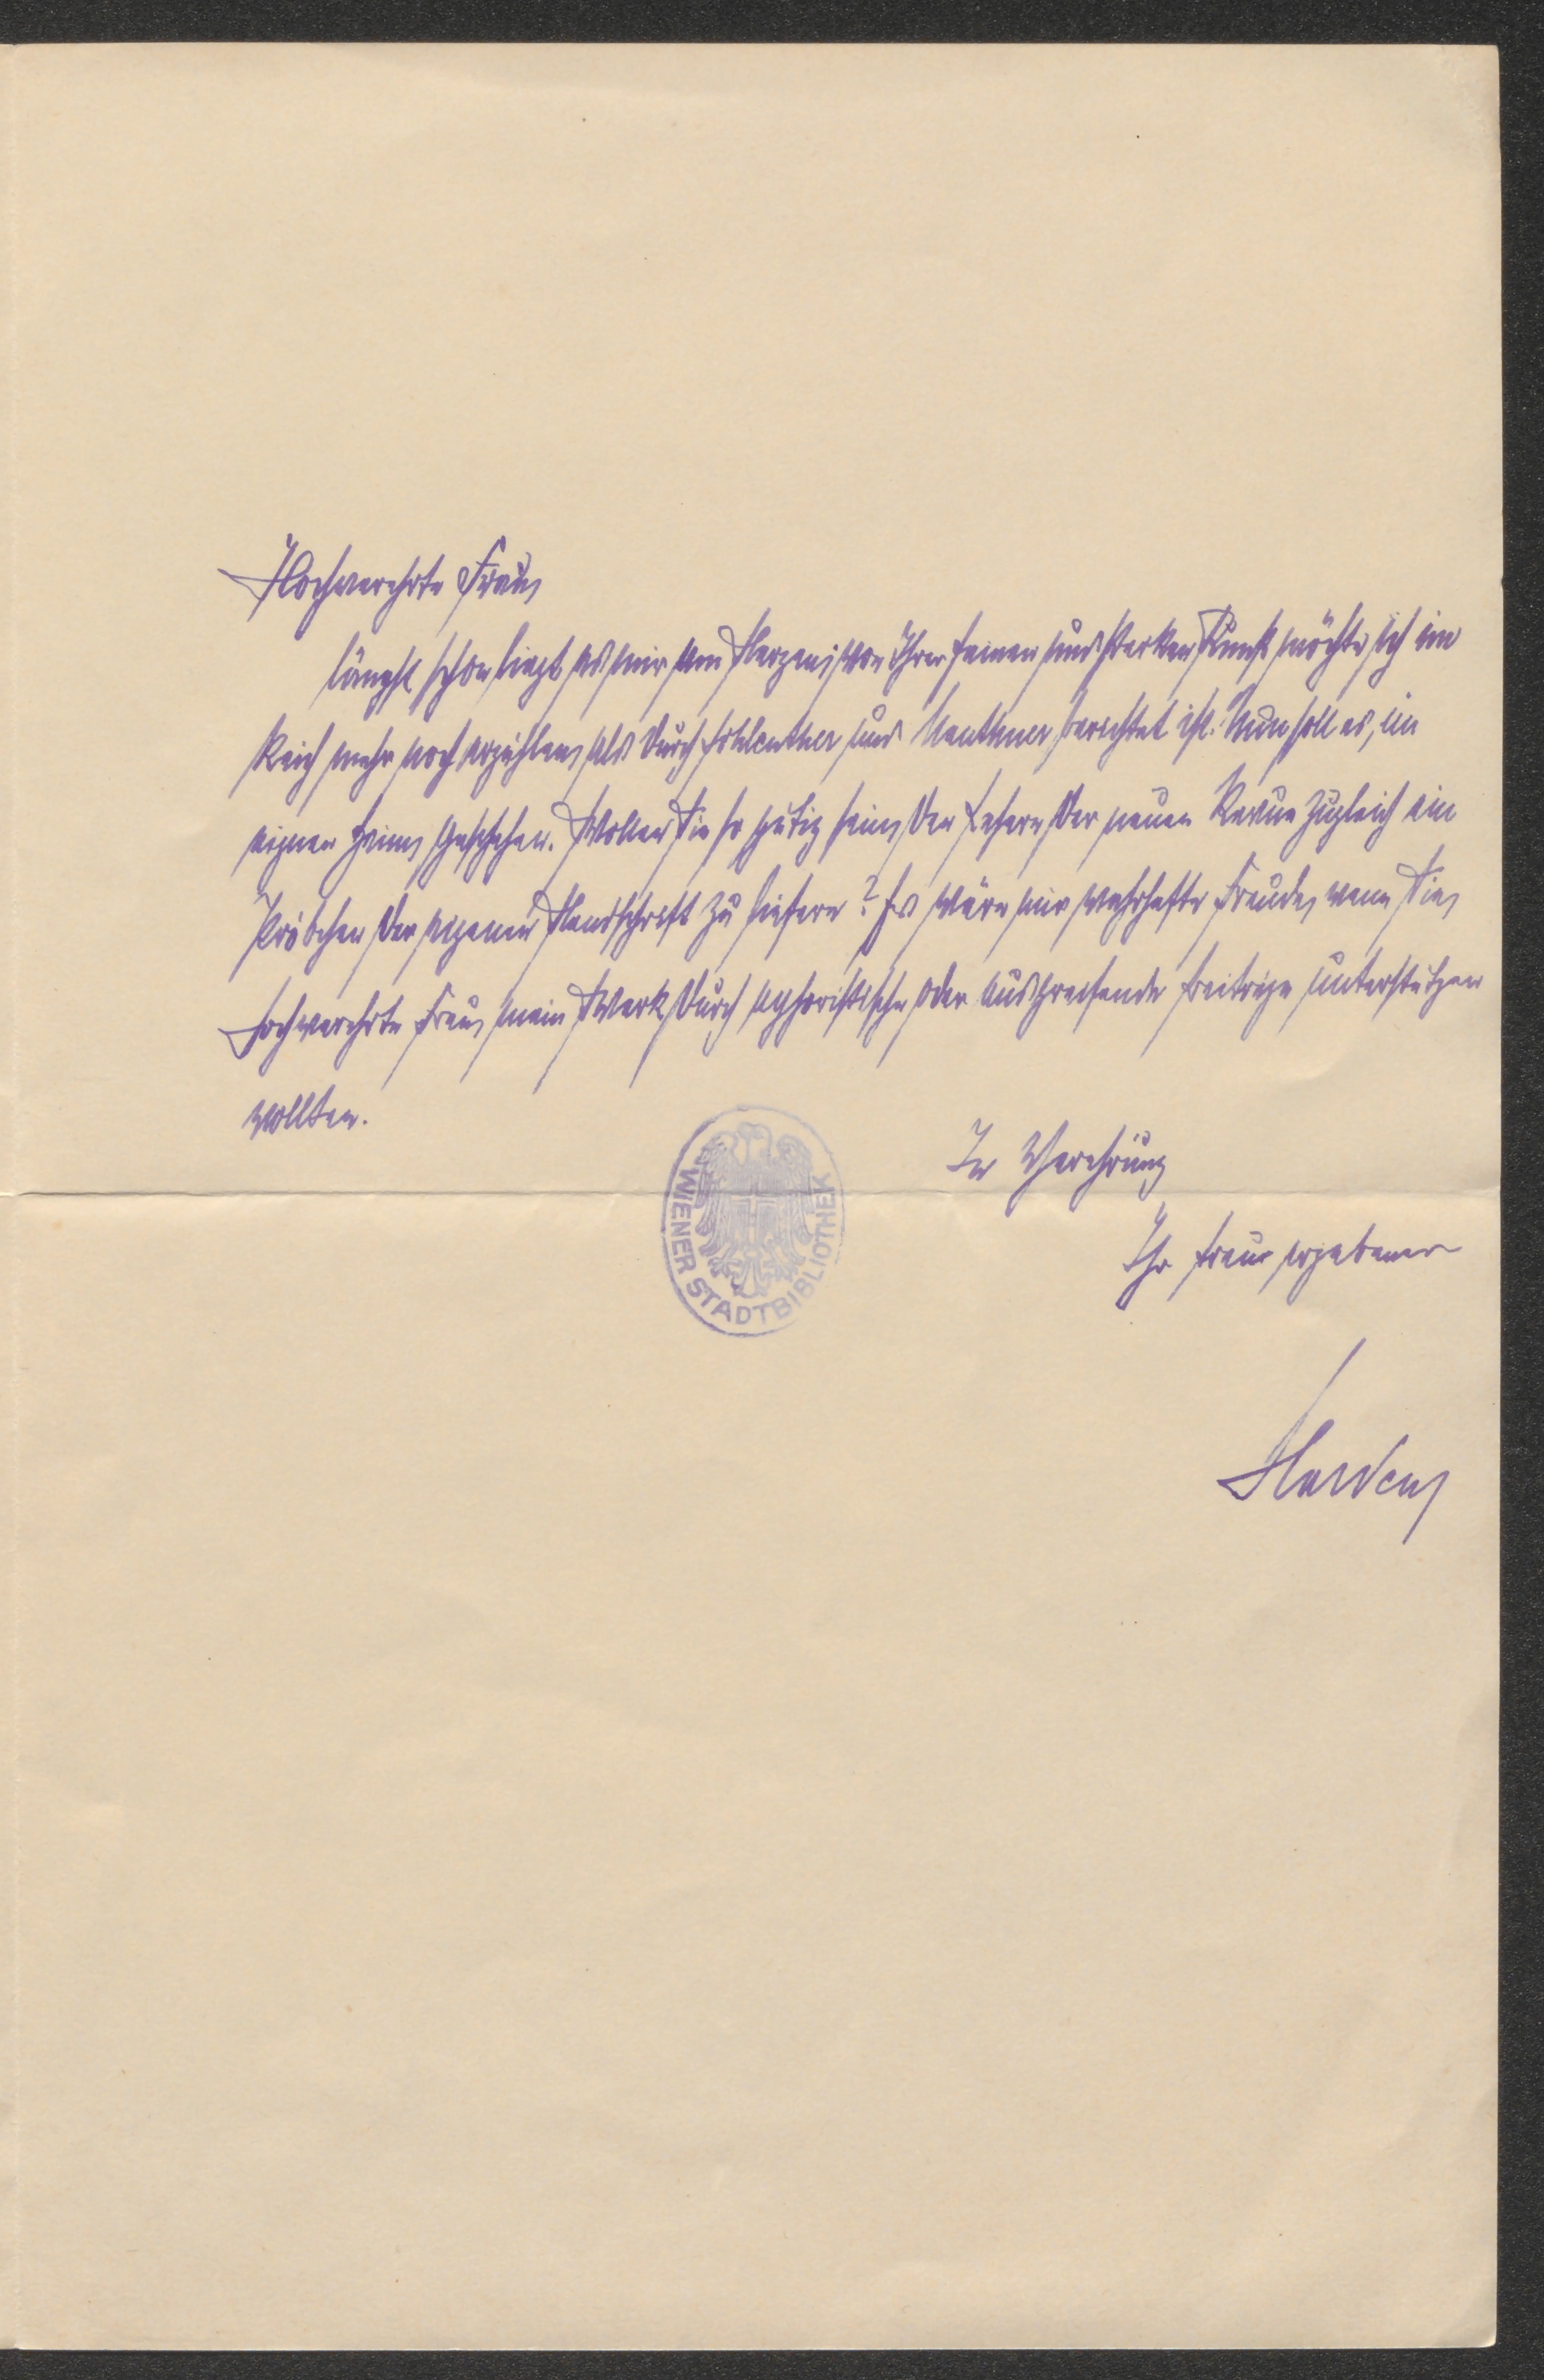 Hochverehrte Frau,
längst schon liegt es mir am Herzen; von Ihrer feinen und starken Kunst möchte ich im
Reich mehr noch erzählen, als durch Schlenther und Mauthner berichtet ist. Nun soll es, im
eignen Heim, geschehen. Wollen Sie so gütig sein, den Lesern der neuen Revue zugleich ein
Pröbchen der eigenen Handschrift zu liefern? Es wäre mir wahrhafte Freude, wenn Sie,
hochverehrte Frau, mein Werk durch aphoristische oder ausgreifende Beiträge unterstützen
wollten.
In Verehrung
Ihr treu ergebener
Harden
WIENER STADTBIBLIOTHEK